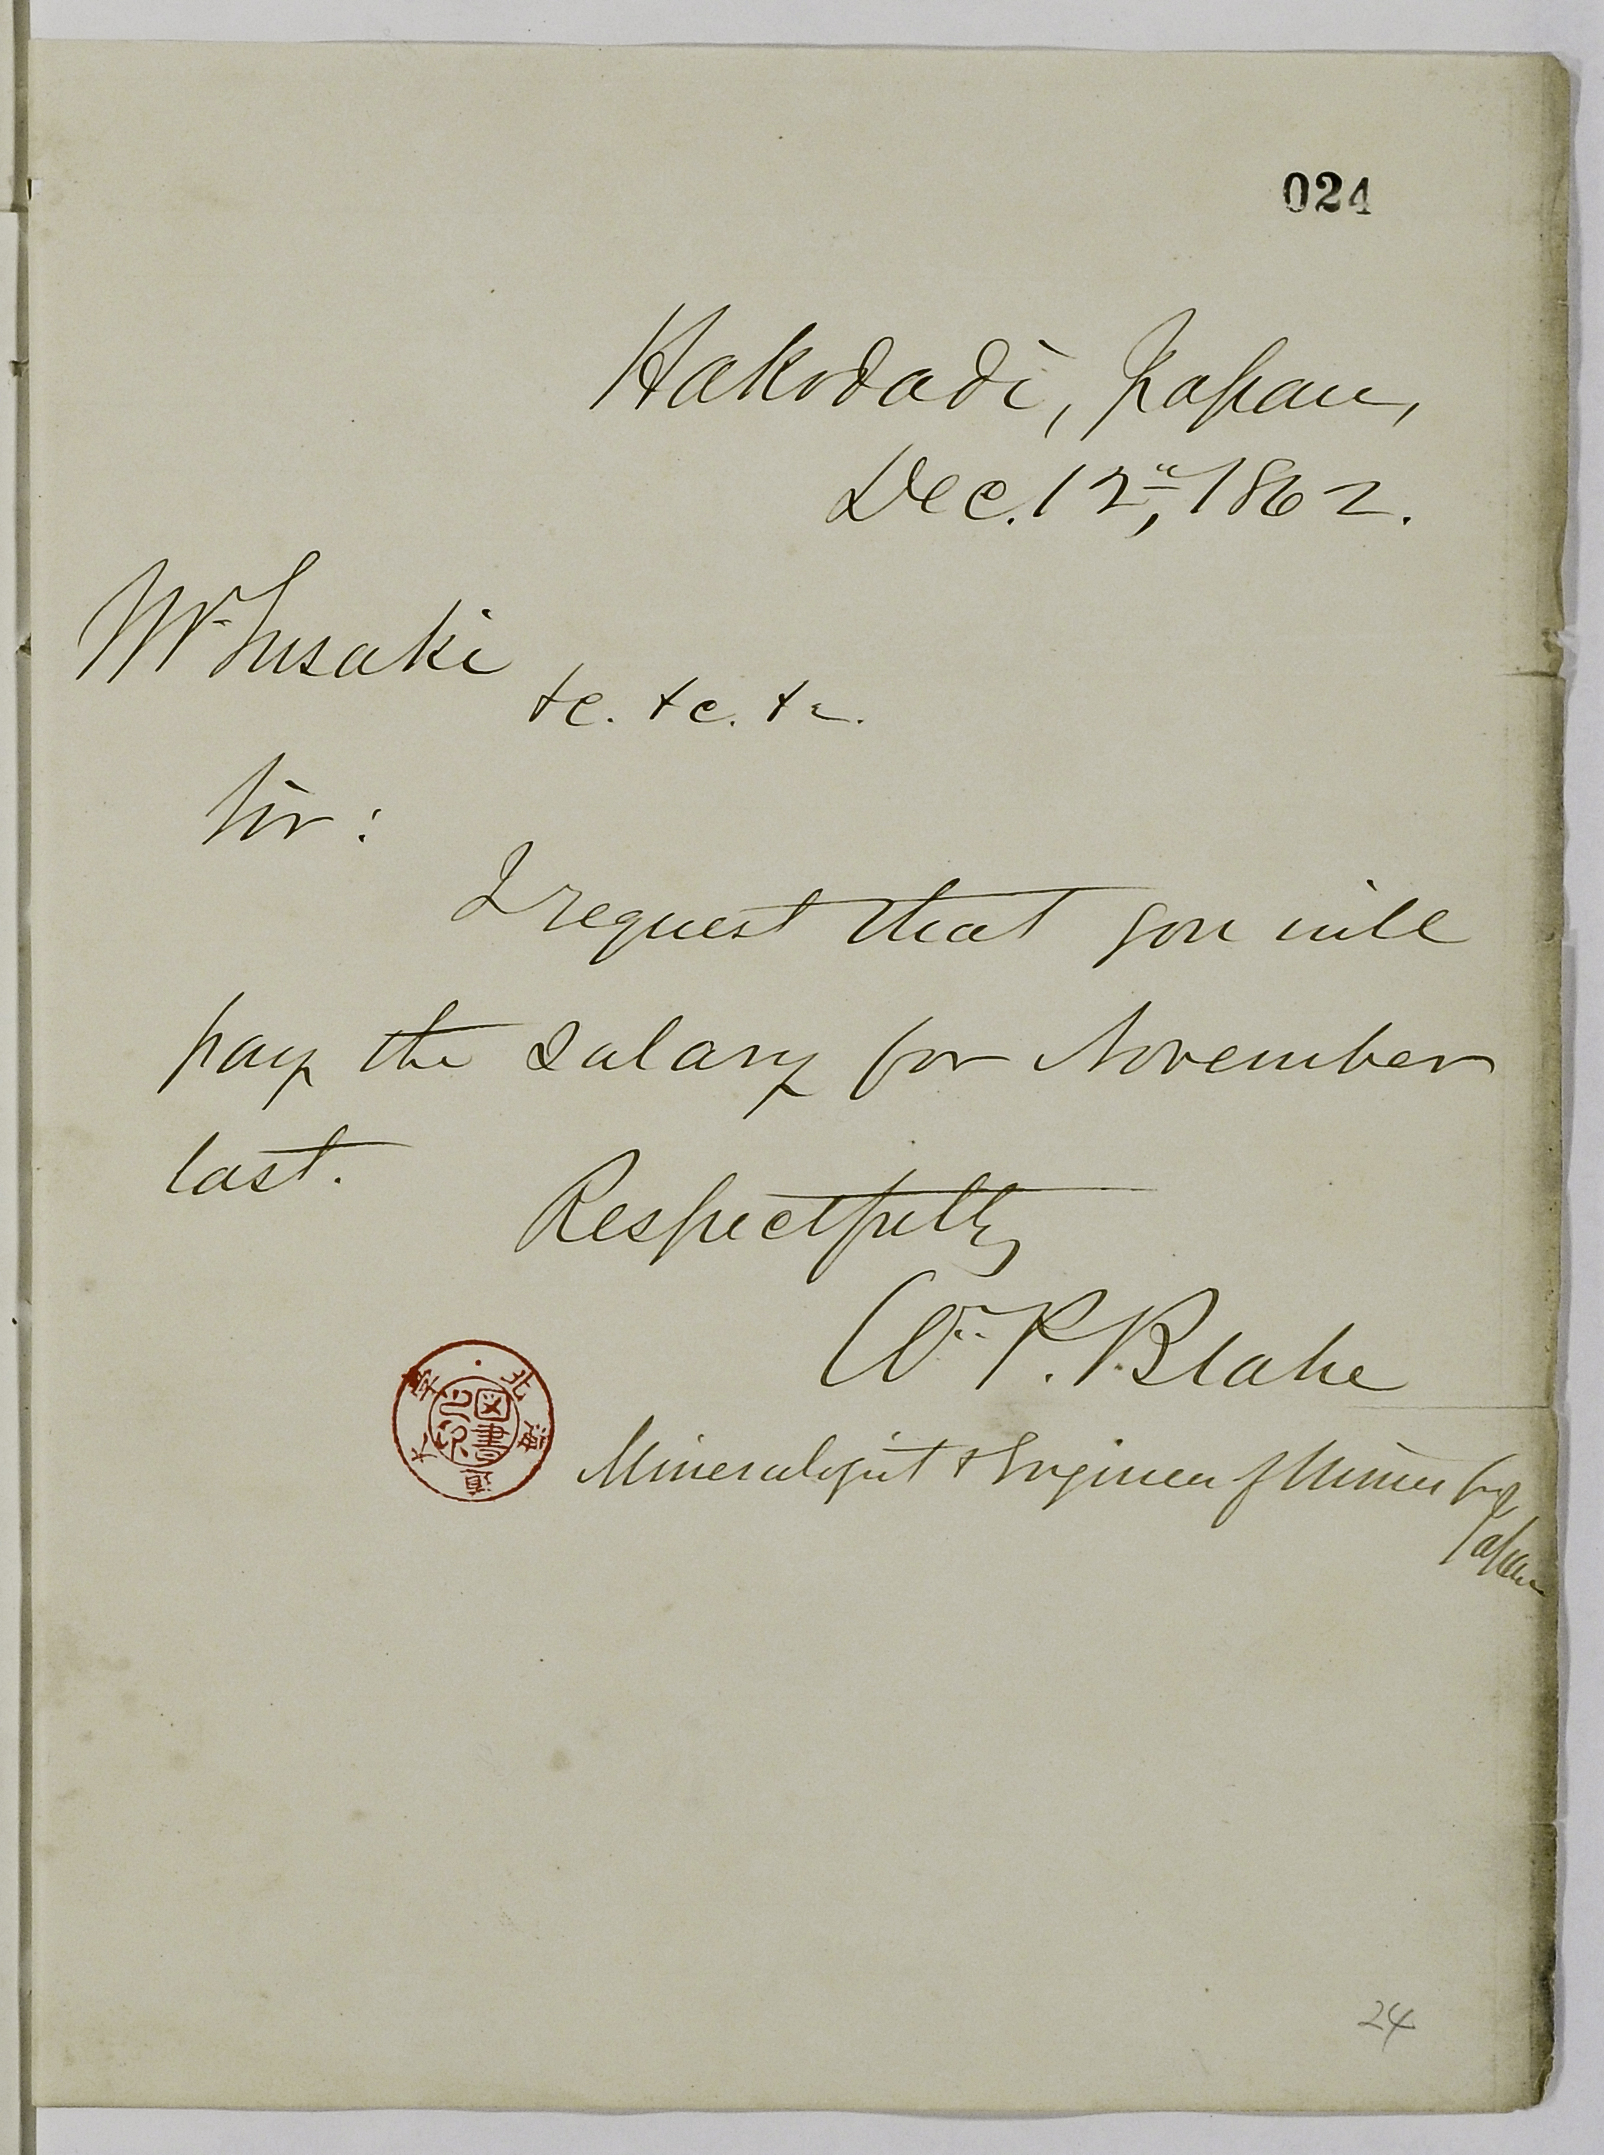 024
Hakodadi, Japan,
Dec. 12th, 1862.
Mr. Susaki
&c. &c. &c.
Sir:
I request that you will
pay the salary for November
last.
Respectfully
Wm. P. Blake
Mineralogist & Engineer of Mines for
Japan
北海道大学
図書之印
24